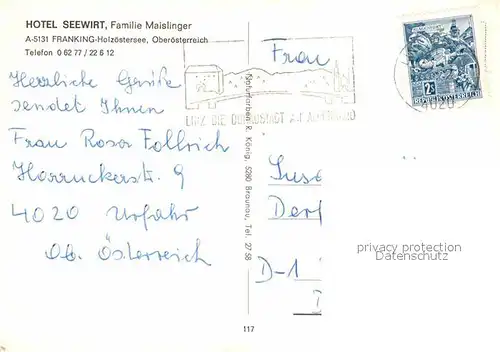 HOTEL SEEWIRT, Familie Maislinger
A-5131 FRANKING-Holzöstersee, Oberösterreich
Telefon 0 62 77 / 22 6 12
Herzliche Grüße
sendet Ihnen
Frau Rosa
Harruckerstr. 9
4020 Urfahr
Ob. Österreich
Naturfarben R. König, 5280 Braunau, Tel. 27 58
117
LINZ DIE DONAUSTADT AM
4020
2S
REPUBLIK ÖSTERREICH
Frau
D-1
privacy protection
Datenschutz